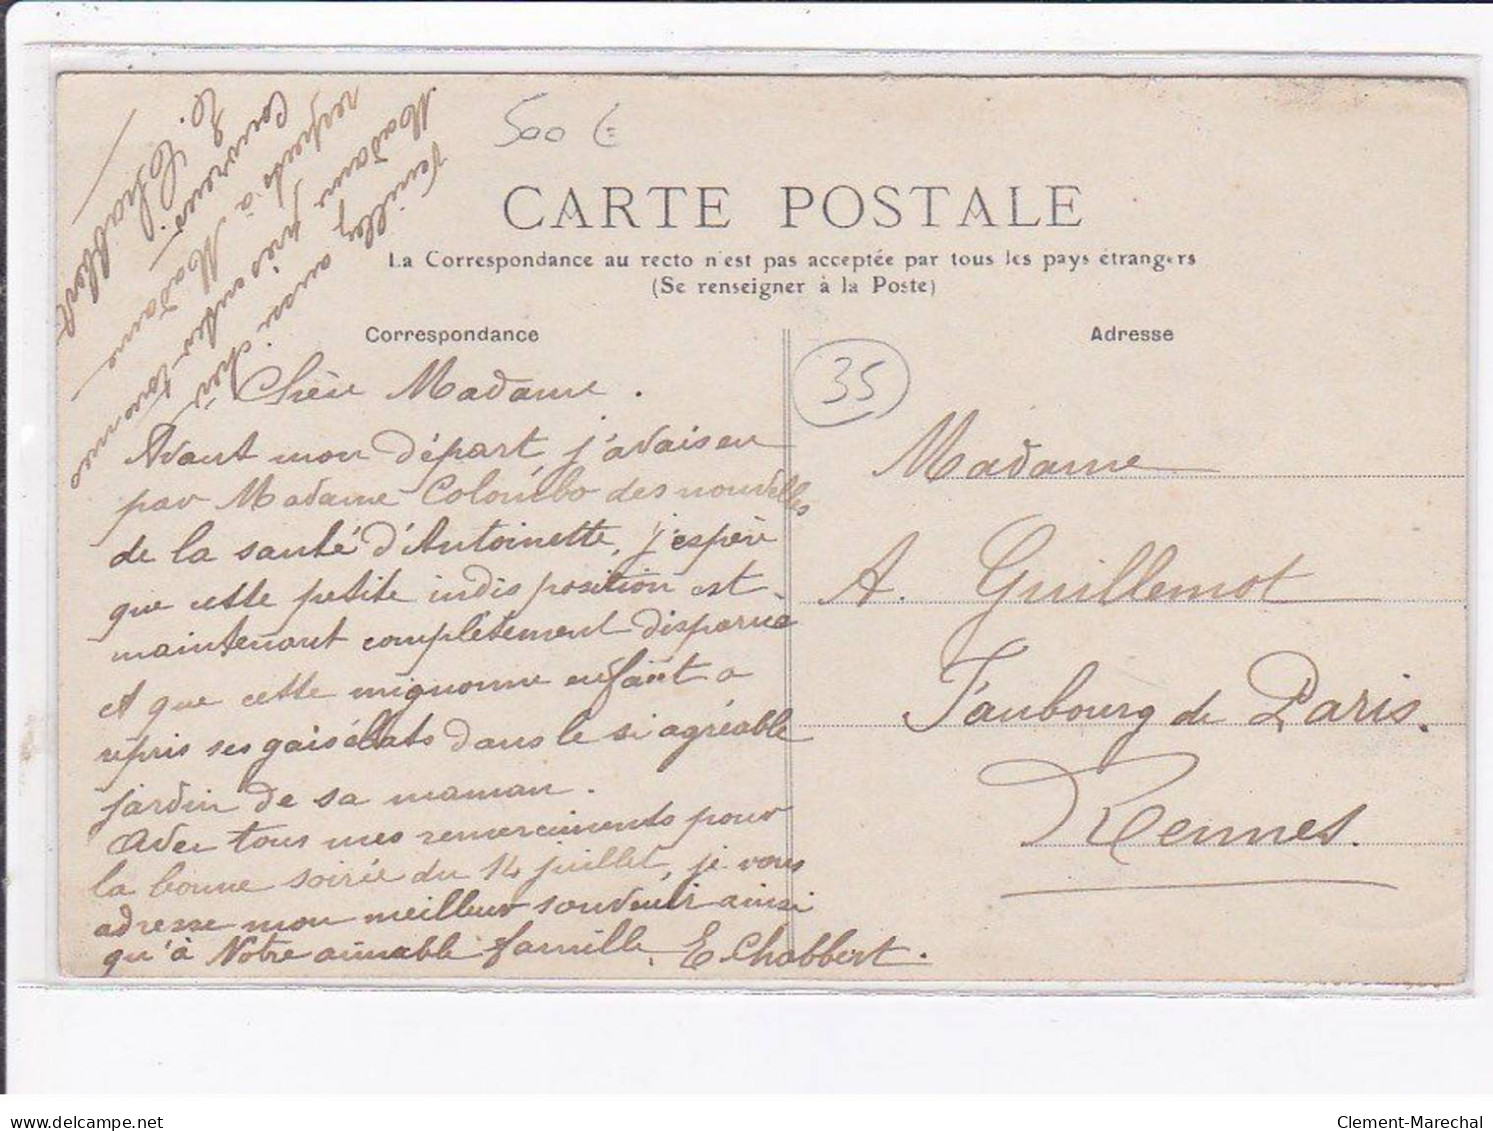 500 €
CARTE POSTALE
La Correspondance au recto n'est pas acceptée par tous les pays étrangers
(Se renseigner à la Poste)
Correspondance
Adresse
35
Chère Madame.
Avant mon départ j'avais eu
par Madame Colombo des nouvelles
de la santé d'Antoinette, j'espère
que cette petite indisposition est
maintenant complètement disparue
et que cette mignonne enfant a
repris ses gais éclats dans le si agréable
jardin de sa maman.
Avec tous mes remerciments pour
la bonne soirée du 14 juillet, je vous
adresse mon meilleur souvenir ainsi
qu'à Notre aimable famille. E. Chabbert.
Veuillez aussi chère
Madame présenter tous mes
respects à Madame
Couvreur
E. Chabbert
Madame
A. Guillemot
Faubourg de Paris.
Rennes.
delcampe.net
Clement-Marechal